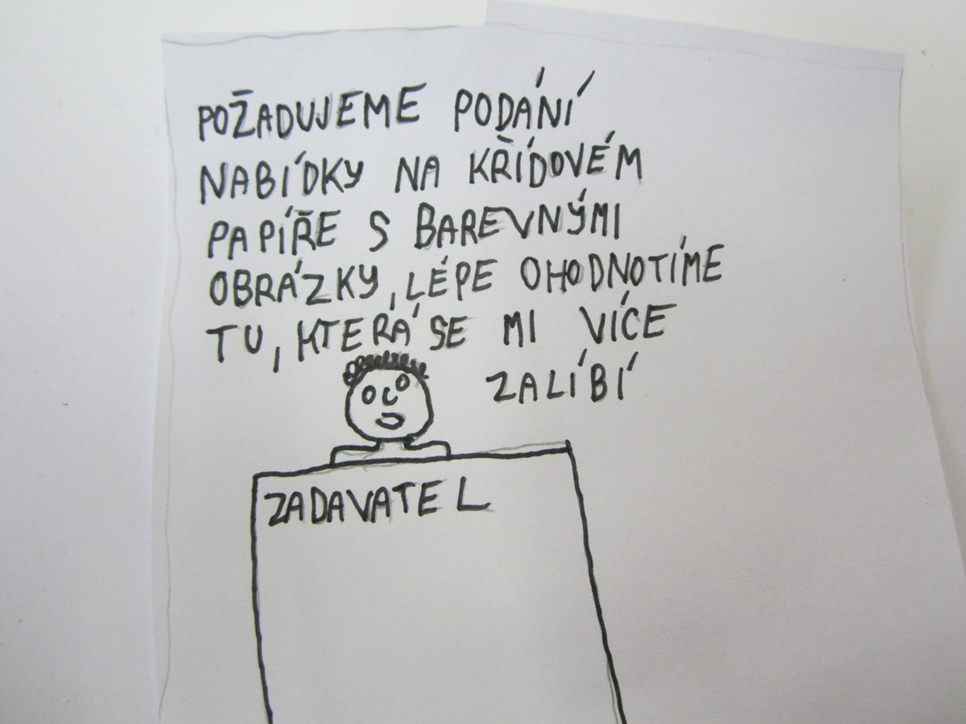 POŽADUJEME PODÁNÍ
NABÍDKY NA KŘÍDOVÉM
PAPÍŘE S BAREVNÝMI
OBRÁZKY, LÉPE OHODNOTÍME
TU, KTERÁ SE MI VÍCE
ZALÍBÍ
ZADAVATEL